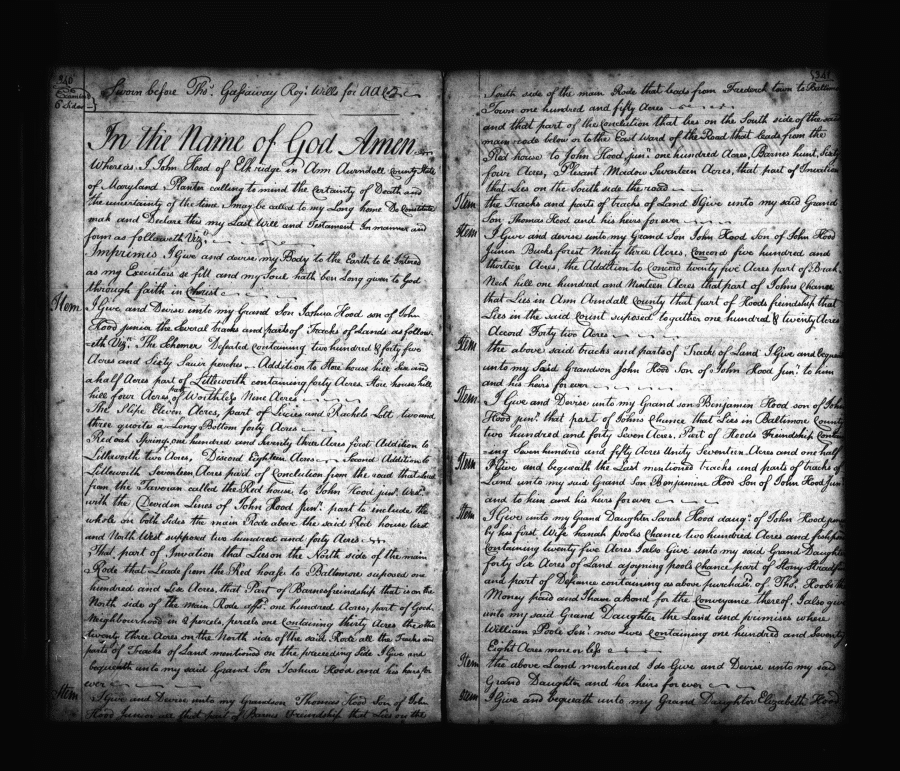 340
Examined
6 Sides
Sworn before Thos. Gassaway Regr. Wills for AA Co
In the Name of God Amen
Whereas I John Hood of Elkridge in Ann Aurndall County State
of Maryland Planter calling to mind the Certainty of Death and
the uncertainty of the time I may be called to my Long home Do Constitute
mak and Declare this my Last Will and Testament In manner and
form as followeth Viz.
Imprimis I Give and devise my Body to the Earth to be Intered
as my Executors se fitt and my Soul hath ben Long given to God
through faith in Christ
Item I Give and Devise unto my Grand Son Joshua Hood son of John
Hood Junior the Several Tracks and parts of Tracks of Lands as follow
eth Viz. The Schemer Defeated Containing two hundred & forty five
Acres and Sixty Squir perches Addition to Hore house hill Six and
a half Acres part of Littleworth containing forty Acres Hore house hill
hill four Acres part of Worthless Nine Acres
The Slipe Eleven Acres, part of Licies and Rachels Lott two and
three quorters a Long Bottom forty Acres
Redoak Spring one hundred and Seventy three Acres first Addition to
Littleworth two Acres, Discord Eighteen Acres Second Addition to
Littleworth Seventeen Acres part of Conclution from the road that leads
from the Tavoran called the Red house to John Hood junr.
with the Devirden Lines of John Hood Junr. part to include the
whole on both Sides the main Rode above the said Red house West
and North West supposed two hundred and forty Acres
That part of Invation that Lies on the North side of the main
Rode that Leads from the Red house to Baltimore suposed one
hundred and Six Acres, that Part of Barnesfrindship that is on the
North side of the main Rode affsd. one hundred Acres, part of Good
Neighbourhood in 2 parcels, percele one Containing thirty Acres the other
twenty three Acres on the North side of the said Rode all the Tracks and
parts of Tracks of Land mentioned on the preceeding Side I Give and
bequeath unto my said Grand Son Joshua Hood and his heirs for
ever
Item I Give and Devise unto my Grandson Thomas Hood Son of John
Hood Junior all that part of Barnes Freindship that Lies on the
341
South side of the main Rode that leads from Frederick town to Baltimore
Town one hundred and fifty Acres
and that part of the Conclution that lies on the South side of the said
main rode below or to the East Ward of the Road that leads from the
Red house to John Hood junr. one hundred Acres, Barnes hunt, Sixty
four Acres, Plesant Madow Seventeen Acres, that part of Invation
that Lies on the South side the road
Item the Tracks and parts of tracks of Land I Give unto my said Grand
Son Thomas Hood and his heirs for ever
Item I Give and devise unto my Grand Son John Hood Son of John Hood
Junior Bucks forest Ninty three Acres, Concord five hundred and
thirteen Acres, the Addition to Concord twenty five Acres part of
Neck hill one hundred and Ninteen Acres that part of Johns Chance
that Lies in Ann Arindall County that part of Hoods freindship that
Lies in the said Count suposed togather one hundred & twenty Acres
Acord Forty two Acres
Item the above said tracks and parts of Tracks of Land I Give and bequeath
unto my Said Grandson John Hood Son of John Hood Junr. to him
and his heirs for ever
Item I Give and Devise unto my Grand son Benjamin Hood son of John
Hood junr. that part of Johns Chance that Lies in Baltimore County
two hundred and forty Seven Acres, Part of Hoods Freindship Contain
=ing Seven hundred and fifty Acres Unity Seventeen Acres and one half
Item I Give and bequeath the Last mentioned tracks and parts of tracks of
Land unto my said Grand Son Benjamine Hood Son of John Hood Junr.
and to him and his heirs for ever
Item I Give unto my Grand Daughter Sarah Hood daugr. of John Hood junr
by his first Wife hanah Pooles Chance two hundred Acres and
Containing twenty five Acres I also Give unto my said Grand Daughter
forty Six Acres of Land ajoyning pools Chance part of Stony
and part of Defience containing as above purchasd. of Thos. Hoobs the
Money paid and I have a Bond for the Conveyance thereof, I also give
unto my said Grand Daughter the Land and premises where
William Poole Senr. now Lives Containing one hundred and Seventy
Eight Acres more or less
Item the above Land mentioned I do Give and Devise unto my said
Grand Daughter and her heirs for ever
Item I Give and bequeath unto my Grand Daughter Elizabeth Hood